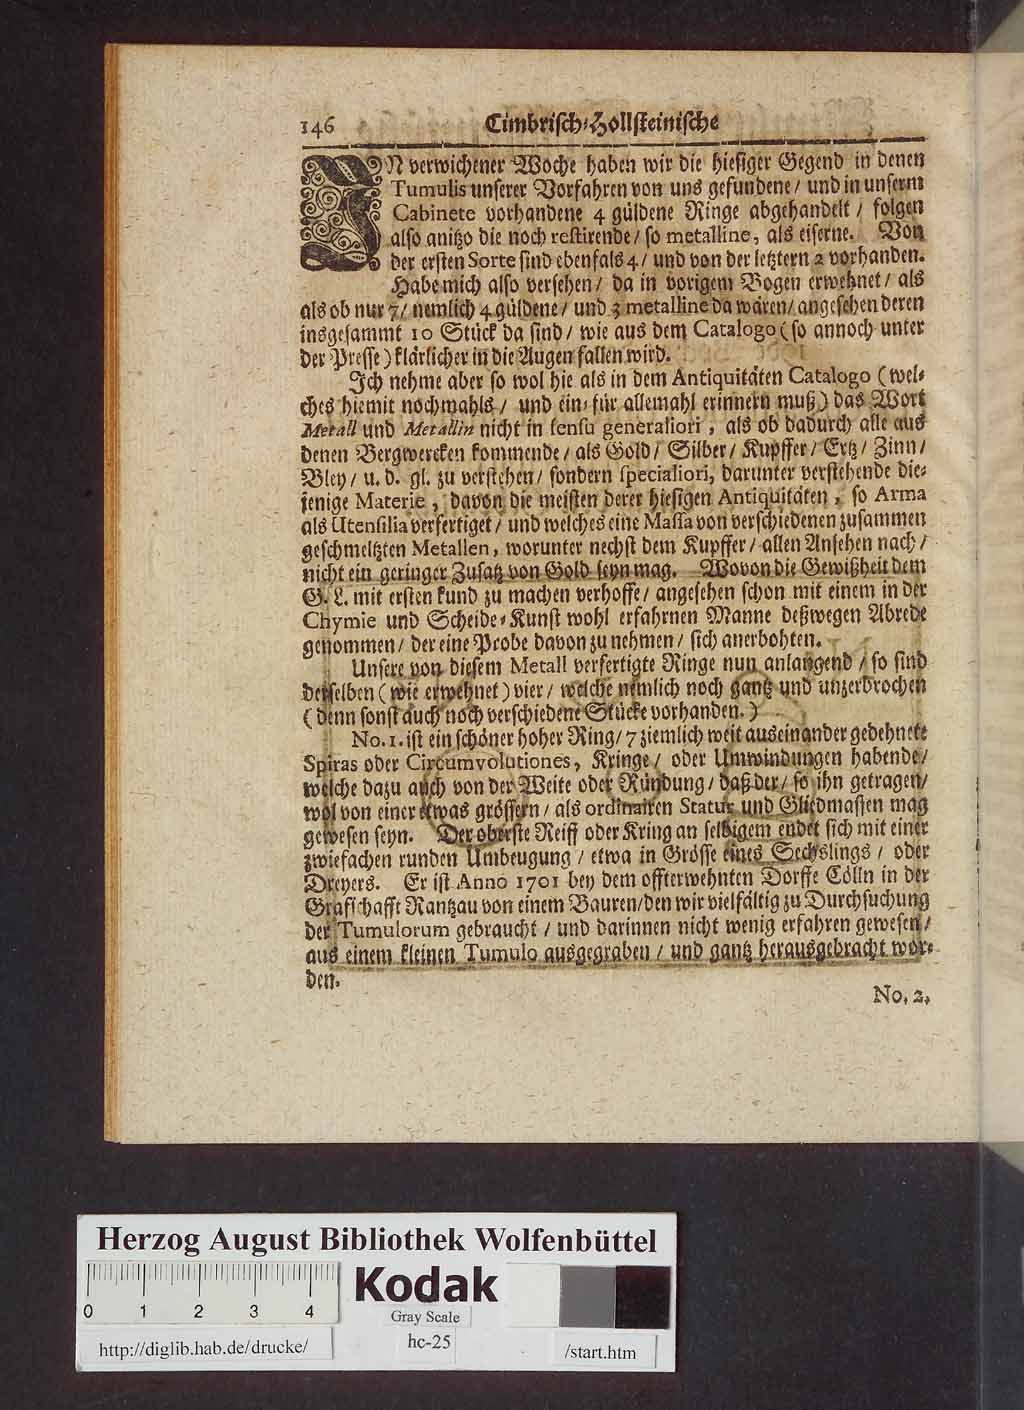 146 Cimbrisch-Hollsteinische
IN verwichener Woche haben wir die hiesiger Gegend in denen
Tumulis unserer Vorfahren von uns gefundene / und in unserm
Cabinete vorhandene 4 güldene Ringe abgehandelt / folgen
also anitzo die noch restirende / so metalline, als eiserne. Von
der ersten Sorte sind ebenfals 4 / und von der letztern 2 vorhanden.
Habe mich also versehen / da in vorigem Bogen erwehnet / als
als ob nur 7 / nemlich 4 güldene / und 3 metalline da wären / angesehen deren
insgesammt 10 Stück da sind / wie aus dem Catalogo (so annoch unter
der Presse) klärlicher in die Augen fallen wird.
Ich nehme aber so wol hie als in dem Antiquitäten Catalogo (wel-
ches hiemit nochmahls / und ein-für allemahl erinnern muß) das Wort
Metall und Metallin nicht in sensu generaliori, als ob dadurch alle aus
denen Bergwercken kommende / als Gold / Silber / Kupffer / Ertz / Zinn /
Bley / u. d. gl. zu verstehen / sondern specialiori, darunter verstehende die-
jenige Materie, davon die meisten derer hiesigen Antiquitäten, so Arma
als Utensilia verfertiget / und welches eine Massa von verschiedenen zusammen
geschmeltzten Metallen, worunter nechst dem Kupffer / allen Ansehen nach /
nicht ein geringer Zusatz von Gold seyn mag. Wovon die Gewißheit dem
G. L. mit ersten kund zu machen verhoffe / angesehen schon mit einem in der
Chymie und Scheide-Kunst wohl erfahrnen Manne deßwegen Abrede
genommen / der eine Probe davon zu nehmen / sich anerbohten.
Unsere von diesem Metall verfertigte Ringe nun anlangend / so sind
derselben (wie erwehnet) vier / welche nemlich noch gantz und unzerbrochen
(denn sonst auch noch verschiedene Stücke vorhanden.)
No. 1. ist ein schöner hoher Ring / 7 ziemlich weit auseinander gedehnete
Spiras oder Circumvolutiones, Kringe / oder Umwindungen habende /
welche dazu auch von der Weite oder Ründung / daß der / so ihn getragen /
wol von einer etwas grössern / als ordinairen Statur und Gliedmassen mag
gewesen seyn. Der oberste Reiff oder Kring an selbigem endet sich mit einer
zwiefachen runden Umbeugung / etwa in Grösse eines Sechslings / oder
Dreyers. Er ist Anno 1701 bey dem offterwehnten Dorffe Cölln in der
Grafschafft Rantzau von einem Bauren / den wir vielfältig zu Durchsuchung
der Tumulorum gebraucht / und darinnen nicht wenig erfahren gewesen /
aus einem kleinen Tumulo ausgegraben / und gantz herausgebracht wor-
den.
No. 2.
Herzog August Bibliothek Wolfenbüttel
0 1 2 3 4
Kodak
Gray Scale
hc-25
http://diglib.hab.de/drucke/
/start.htm